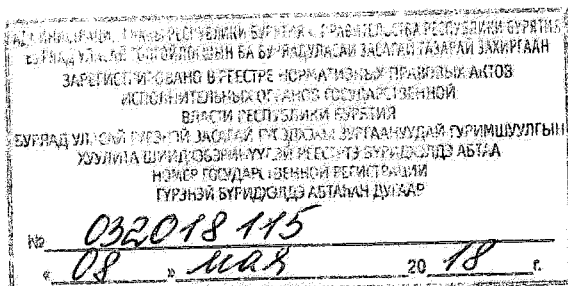 АДМИНИСТРАЦИЯ ГЛАВЫ РЕСПУБЛИКИ БУРЯТИЯ И ПРАВИТЕЛЬСТВА РЕСПУБЛИКИ БУРЯТИЯ
БУРЯАД УЛАСАЙ ТОЛГОЙЛОГШЫН БА БУРЯАД УЛАСАЙ ЗАСАГАЙ ГАЗАРАЙ ЗАХИРГААН
ЗАРЕГИСТРИРОВАНО В РЕЕСТРЕ НОРМАТИВНЫХ ПРАВОВЫХ АКТОВ
ИСПОЛНИТЕЛЬНЫХ ОРГАНОВ ГОСУДАРСТВЕННОЙ
ВЛАСТИ РЕСПУБЛИКИ БУРЯТИЯ
БУРЯАД УЛАСАЙ ГҮРЭНЭЙ ЗАСАГАЙ
ХУУЛИТА РЕЕСТРТЭ БҮРИДХЭЛДЭ АБТАА
НОМЕР ГОСУДАРСТВЕННОЙ РЕГИСТРАЦИИ
ГҮРЭНЭЙ БҮРИДХЭЛДЭ АБТАҺАН ДУГААР
№ 032018115
« 08 » мая 20 18 г.